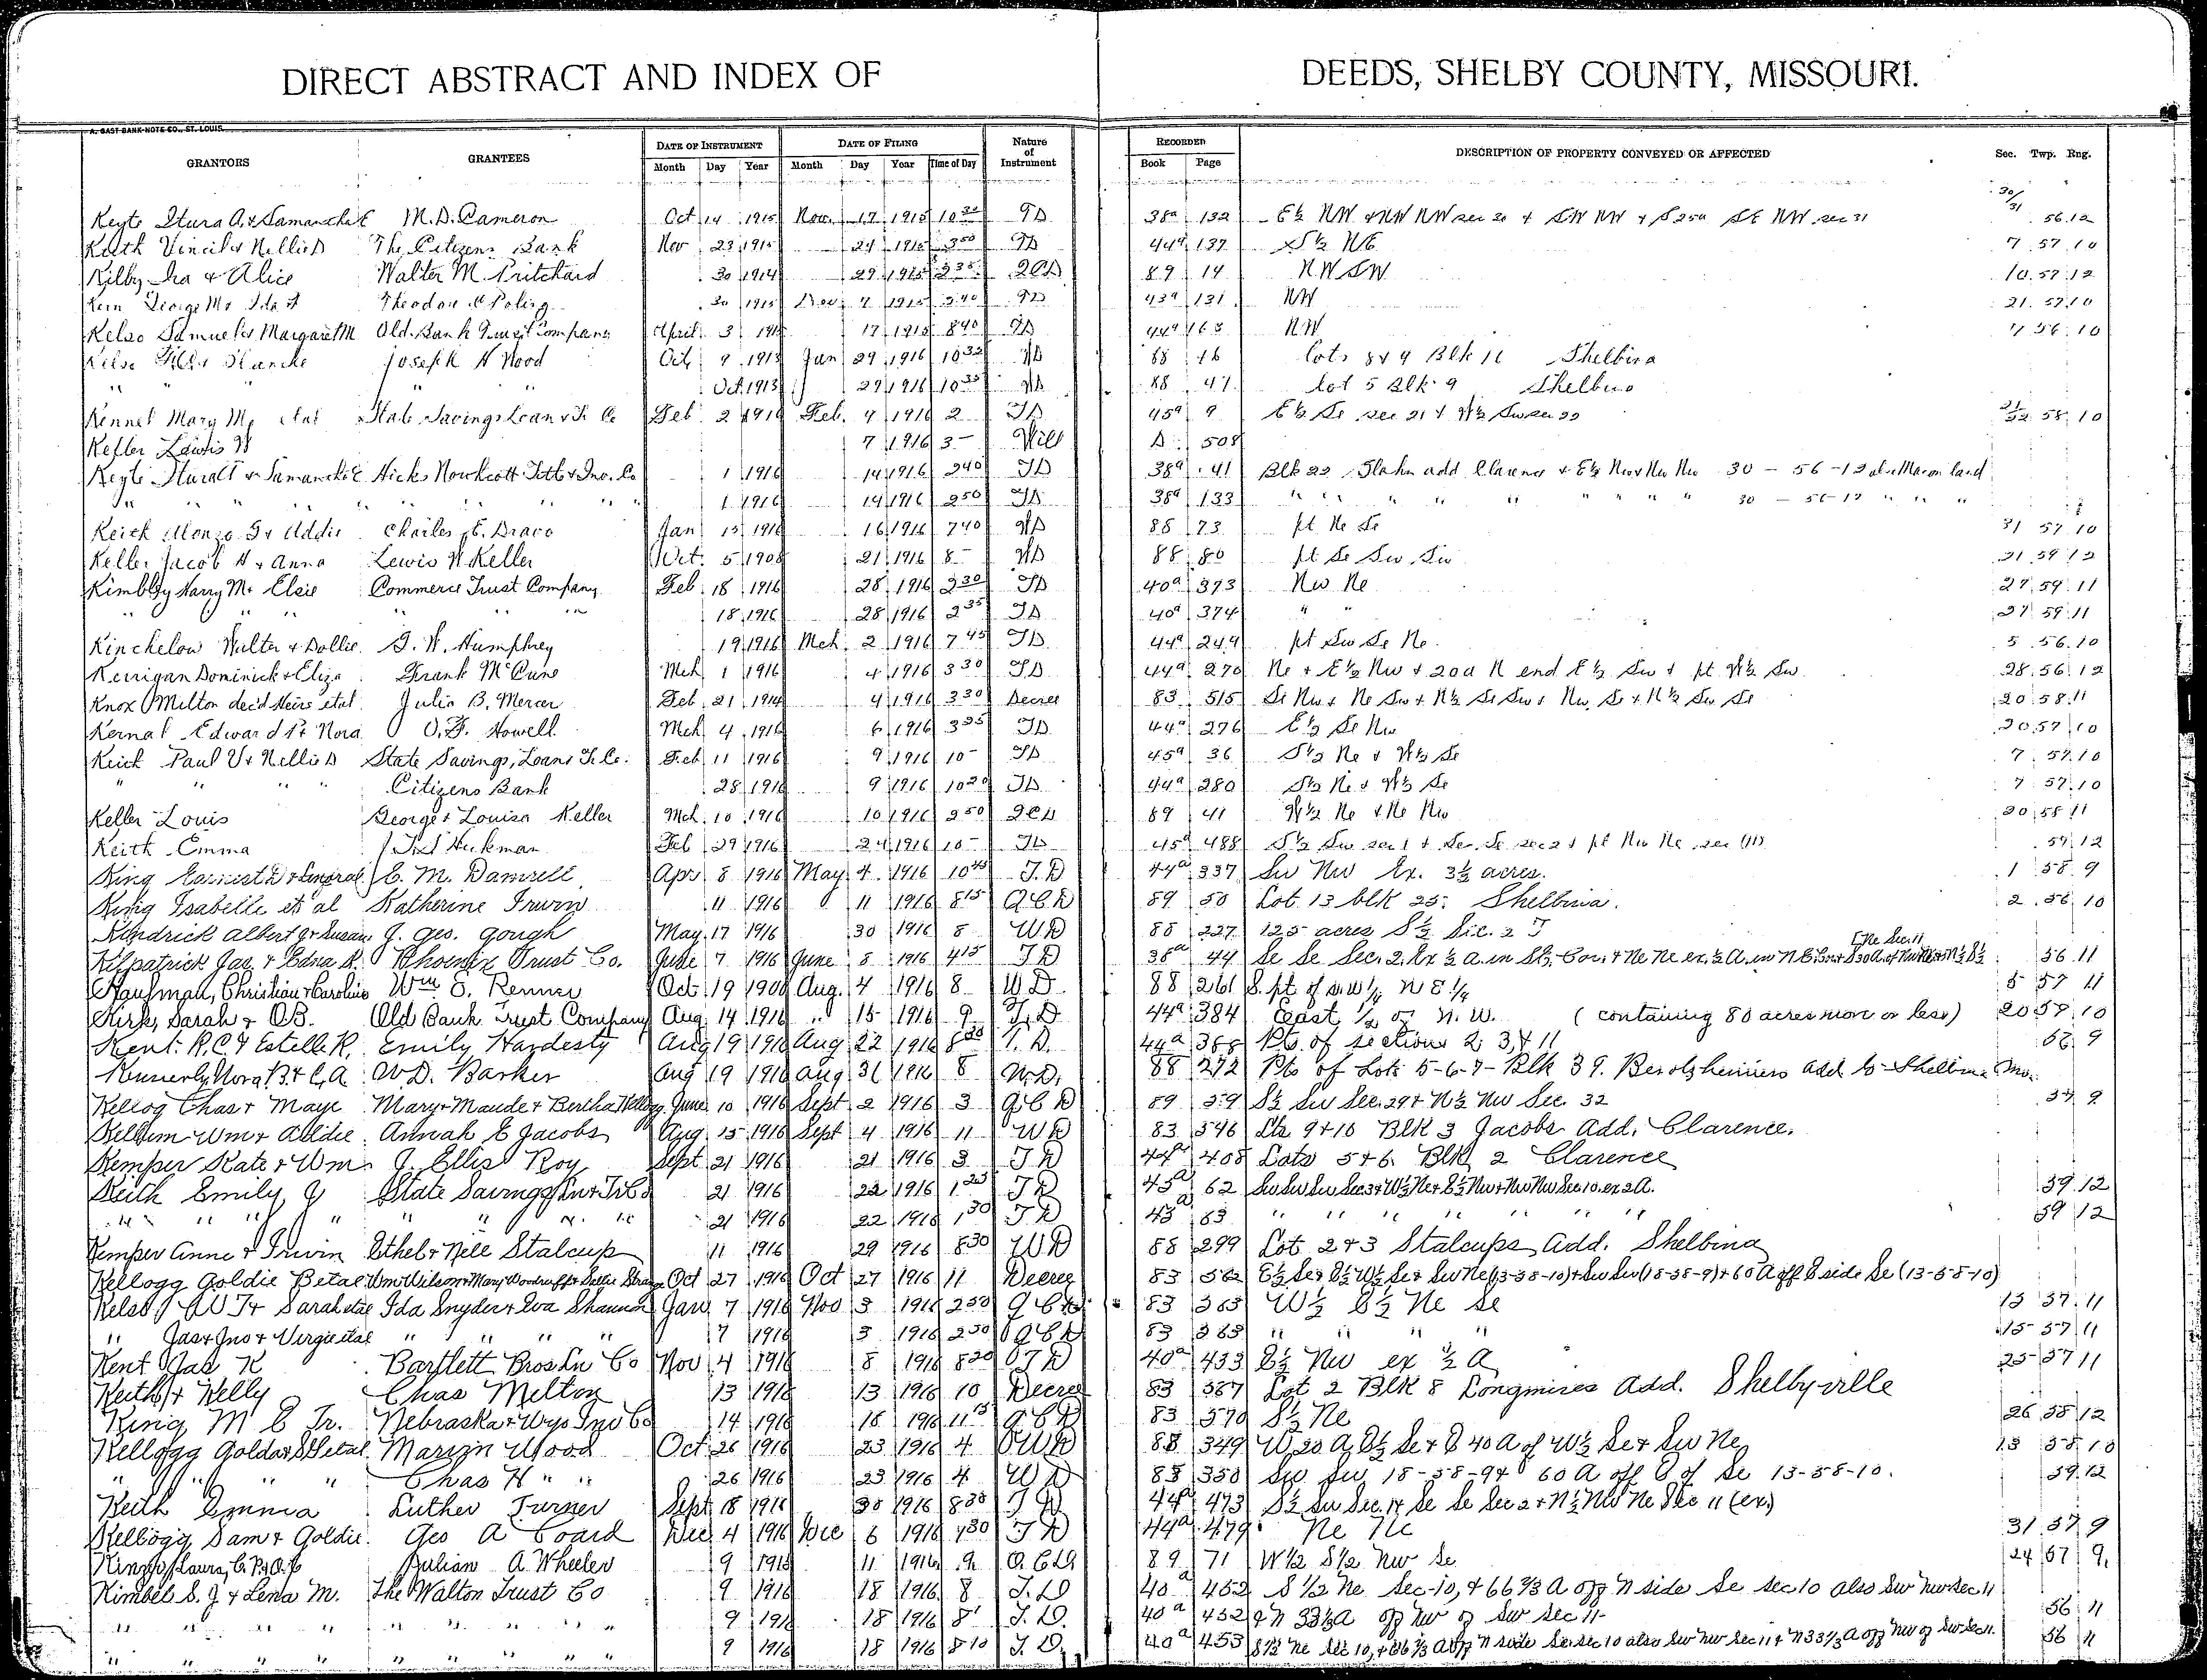 DIRECT ABSTRACT AND INDEX OF DEEDS, SHELBY COUNTY, MISSOURI.
A. GAST BANK-NOTE CO., ST. LOUIS.
GRANTORS GRANTEES DATE OF INSTRUMENT DATE OF FILING Nature of Instrument RECORDED DESCRIPTION OF PROPERTY CONVEYED OR AFFECTED Sec. Twp. Rng.
Month Day Year Month Day Year Time of Day Book Page
30/31
Keyte M. D. Cameron Oct 14 1915 Nov. 17 1915 10 30 TD 38a 132 E½ NW + NW NW sec 30 + SW NW + S 25a SE NW sec 31 56.12
Keith Nellie D The Citizens Bank Nov 23 1915 24 1915 3 50 TD 44a 137 S½ NE 7 57 10
Kilby Ira & Alice Walter M. Pritchard 30 1914 29 1915 2 35 QCD 89 14 NW SW 10 57 12
George M & Ida Theodore Poling 30 1915 Dec. 1915 2 40 TD 43a 131 NW 21 57 10
Kelso Samuel & Margaret M Old Bank Trust Company April 3 1915 17 1915 8 40 TD 44a 165 NW 56 10
Kelso Blanche Joseph H Wood Oct 9 1913 Jan 29 1916 10 30 WD 88 46 lots 8 & 9 Blk 11 Shelbina
" " " " Oct 1913 29 1916 10 35 WD 88 47 lot 5 Blk 9 Shelbina
Kennel Mary M. etal State Savings Loan & Tr Co Feb 2 1916 Feb. 4 1916 2 TD 45a 9 E½ Se sec 21 + W½ Sw sec 22 21/22 58 10
Keller Lewis W 7 1916 3 Will D 508
Keyte & Samantha E 1 1916 14 1916 2 40 TD 38a 41 Blk 22 add Clarence 30 - 56 - 12 also Macon land
" " " " 1 1916 14 1916 2 50 TD 38a 133 " " " " 30 - 56 - 12 " " "
Keich Alonzo & Addie Charles E. Draco Jan 15 1916 16 1916 7 40 WD 88 73 pt Ne Se 31 57 10
Keller Jacob H & Anna Lewis W. Keller Oct. 5 1908 21 1916 8 WD 88 80 pt Se Sw Sw 21 59 12
Kimbley Harry M & Elsie Commerce Trust Company Feb 18 1916 28 1916 2 30 TD 40a 373 Nw Ne 27 59 11
" " " " 18 1916 28 1916 2 35 TD 40a 374 " " 27 59 11
Kinchelow Walter & Dollie J. W. Humphrey 19 1916 Mch. 2 1916 7 45 TD 44a 249 pt Sw Se Ne 5 56.10
Kerrigan Dominick & Eliza Frank McCune Mch 1 1916 4 1916 3 30 TD 44a 270 Ne + E½ Nw + 20a N end E½ Sw + pt W½ Sw 28 56 12
Knox Milton dec'd Heirs etal Julia B. Mercer Feb. 21 1914 4 1916 3 30 Decree 83 515 Se Nw + Ne Sw + N½ Se Sw + Nw Se + N½ Sw Se 20 58 11
Kernal Edward P & Nora O. F. Howell Mch 4 1916 6 1916 3 35 TD 44a 276 E½ Se Nw 20 57 10
Keith Paul V & Nellie D State Savings, Loan & Tr. Co. Feb 11 1916 9 1916 10 TD 45a 36 S½ Ne + W½ Se 7 57 10
" " " " Citizens Bank 28 1916 9 1916 10 20 TD 44a 280 S½ Ne + W½ Se 7 57 10
Keller Louis George & Louisa Keller Mch. 10 1916 10 1916 2 50 QCD 89 41 W½ Ne + Ne Nw 20 58 11
Keith Emma Hickman Feb 29 1916 24 1916 10 TD 45a 488 S½ Sw sec 1 + Se Se sec 2 + pt Nw Ne sec (11) 59 12
King C. M. Damrell Apr 8 1916 May 4 1916 10 45 T.D 44a 337 Sw Nw Ex. 3½ acres. 1 58 9
King Isabelle et al Katherine Irwin 11 1916 11 1916 8 15 Q.C.D 89 50 Lot 13 blk 25: Shelbina. 2 56 10
Kendrick Albert J & Susan J. Geo. Gough May 17 1916 30 1916 8 WD 88 227 125 acres S½ Sec. 2 T
Kilpatrick Jas. & Edna R. Phoenix Trust Co. June 7 1916 June 8 1916 4 15 TD 38a 44 Se Se Sec. 2, Ex ½ a. in + Ne Ne ex ½ A. in N E. Cor 56 11
Kaufman, Christian & Caroline Wm O. Renner Oct 19 1900 Aug. 4 1916 8 WD 88 261 S. pt of S.W¼ N E ¼ 5 57 11
Kirk, Sarah & O.B. Old Bank Trust Company Aug 14 1916 " 15 1916 9 T.D 44a 384 East ½ of N.W. (containing 80 acres more or less) 20 57 10
Kent R. C. & Estelle R. Emily Hardesty Aug 19 1916 Aug 22 1916 8 30 T.D. 44a 388 Pts. of sections 2, 3, & 11 56 9
Nora B. & C.A. W.D. Barker Aug 19 1916 Aug 31 1916 8 W.D. 88 272 Pts of Lots 5-6-7- Blk 39. Berolzheimers add to Shelbina Mo.
Kellog Chas & Maye Mary & Maude & Bertha Kellogg June 10 1916 Sept 2 1916 3 QCD 89 59 S½ Sw Sec. 29 + N½ Nw Sec. 32 57 9
Kellum Wm & Alldie Annah E Jacobs Aug 15 1916 Sept 4 1916 11 WD 83 546 Lts. 9 + 10 Blk 3 Jacobs Add. Clarence.
Kemper Kate & Wm. J. Ellis Roy Sept 21 1916 21 1916 3 TD 44a 408 Lots 5 + 6 Blk 2 Clarence
Keith Emily J State Savings Ln & Tr Co 21 1916 22 1916 1 25 TD 45a 62 Sw Sw Sw Sec 3 + W½ Ne + E½ Nw + Nw Nw Sec 10 ex 2A. 59 12
" " " " " " " " 21 1916 22 1916 1 30 TD 45a 63 " " " " " " 59 12
Kemper Anne & Irwin Ethel & Nell Stalcup 11 1916 29 1916 8 30 WD 88 299 Lot 2 + 3 Stalcups Add. Shelbina
Kellogg Goldie B etal Wm Wilson & Mary Woodruff & Sallie Oct 27 1916 Oct 27 1916 11 Decree 83 562 E½ Se + E½ W½ Se + Sw Ne (13-58-10) + Sw Sw (18-58-9) + 60 A off E side Se (13-58-10)
Kelso W T & Sarah etal Ida Snyder & Eva Shannon Jan 7 1916 Nov 3 1916 2 30 QCD 83 565 W½ E½ Ne Se 15 57 11
" Jas & Jno & Virgie etal " " " " 7 1916 3 1916 2 30 QCD 83 565 " " " " 15 57 11
Kent Jas K Bartlett Bros Ln Co Nov 4 1916 8 1916 8 20 TD 40a 433 E½ Nw ex ½ A 25 57 11
Keith & Kelly Chas Melton 13 1916 13 1916 10 Decree 83 567 Lot 2 Blk 8 Longmires Add. Shelbyville
King M E Jr. Nebraska & Wyo Inv Co 14 1916 16 1916 11 15 QCD 83 570 S½ Ne 26 58 12
Kellogg Golda etal Marion Wood Oct 26 1916 23 1916 4 WD 88 349 W 20 A E½ Se + E 40 A of W½ Se + Sw Ne 13 58 10
" " " " Chas H " " 26 1916 23 1916 4 WD 88 350 Sw Sw 18-58-9 + 60 A off E of Se 13-58-10. 59 12
Keith Emma Luther Turner Sept 18 1916 30 1916 8 30 TD 44a 473 S½ Sw Sec. 1 + Se Se Sec 2 + N½ Nw Ne Sec 11 (ex.)
Kellogg Sam & Goldie. Geo A Coard Dec 4 1916 Dec 6 1916 4 30 TD 44a 479 Ne Ne 31 57 9
Laura, C. P. & O. C Julian A. Wheeler 9 1916 11 1916 9 Q.C.D 89 71 W½ S½ NW Se 24 57 9.
Kimbel S. J & Lena M. The Walton Trust Co 9 1916 18 1916 8 T.D 40a 452 S ½ Ne Sec-10, + 66 ⅔ A off N side Se sec 10 also Sw Nw Sec 11
" " " " " " " " 9 1916 18 1916 8 T.D. 40a 452 + N 33⅓ A off NW of SW sec 11- 56 11
" " " " " " " " 9 1916 18 1916 8 10 T.D. 40a 453 S½ Ne Sec 10, + 66 ⅔ A off N side Se sec 10 also Sw Nw Sec 11 + N 33⅓ A off NW of Sw Sec 11. 56 11